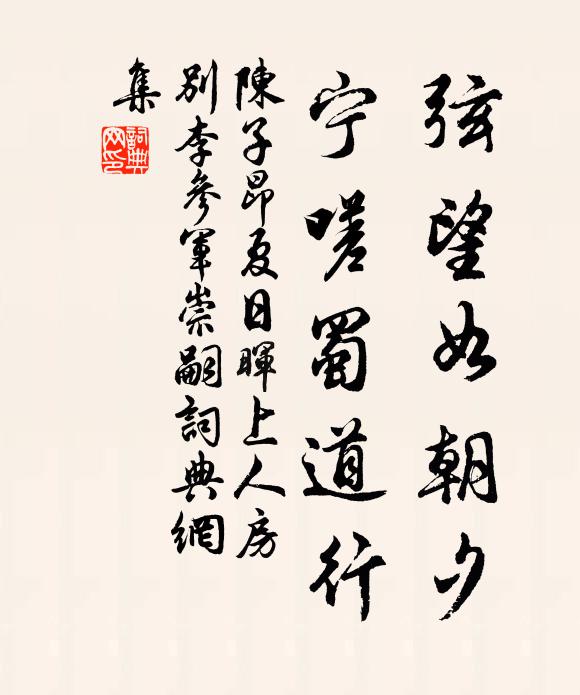 弦望如朝夕
宁嗟蜀道行
陳子昂夏日暉上人房
別李參軍崇嗣詞典網
集
詞典
网印